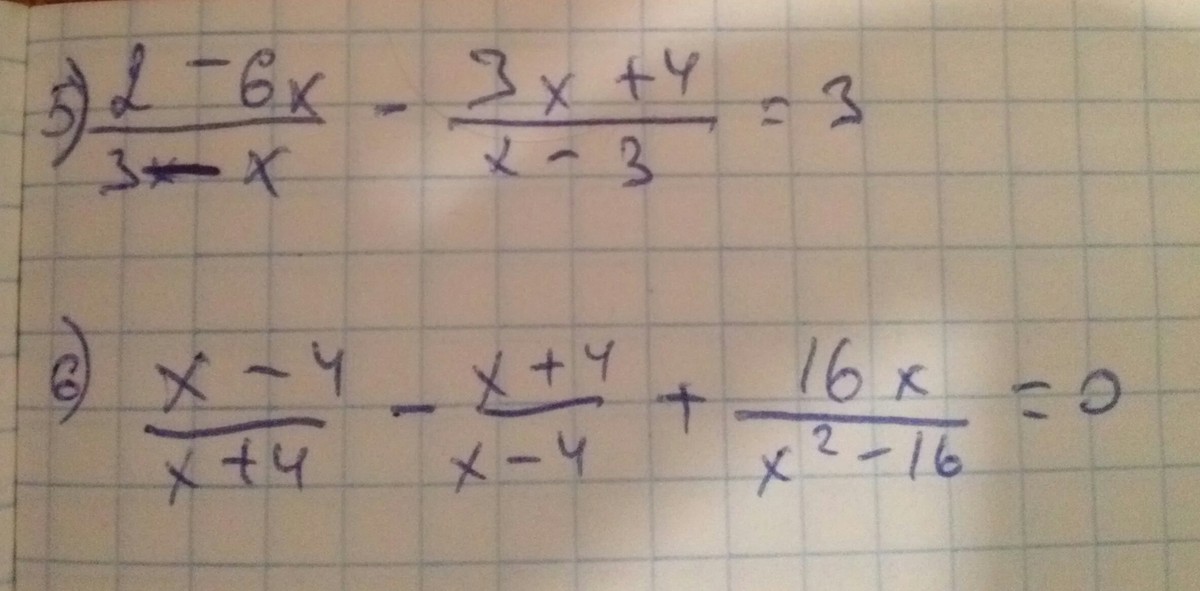 5) (2 - 6x)/(3 - x) - (3x + 4)/(x - 3) = 3
6) (x - 4)/(x + 4) - (x + 4)/(x - 4) + 16x/(x² - 16) = 0